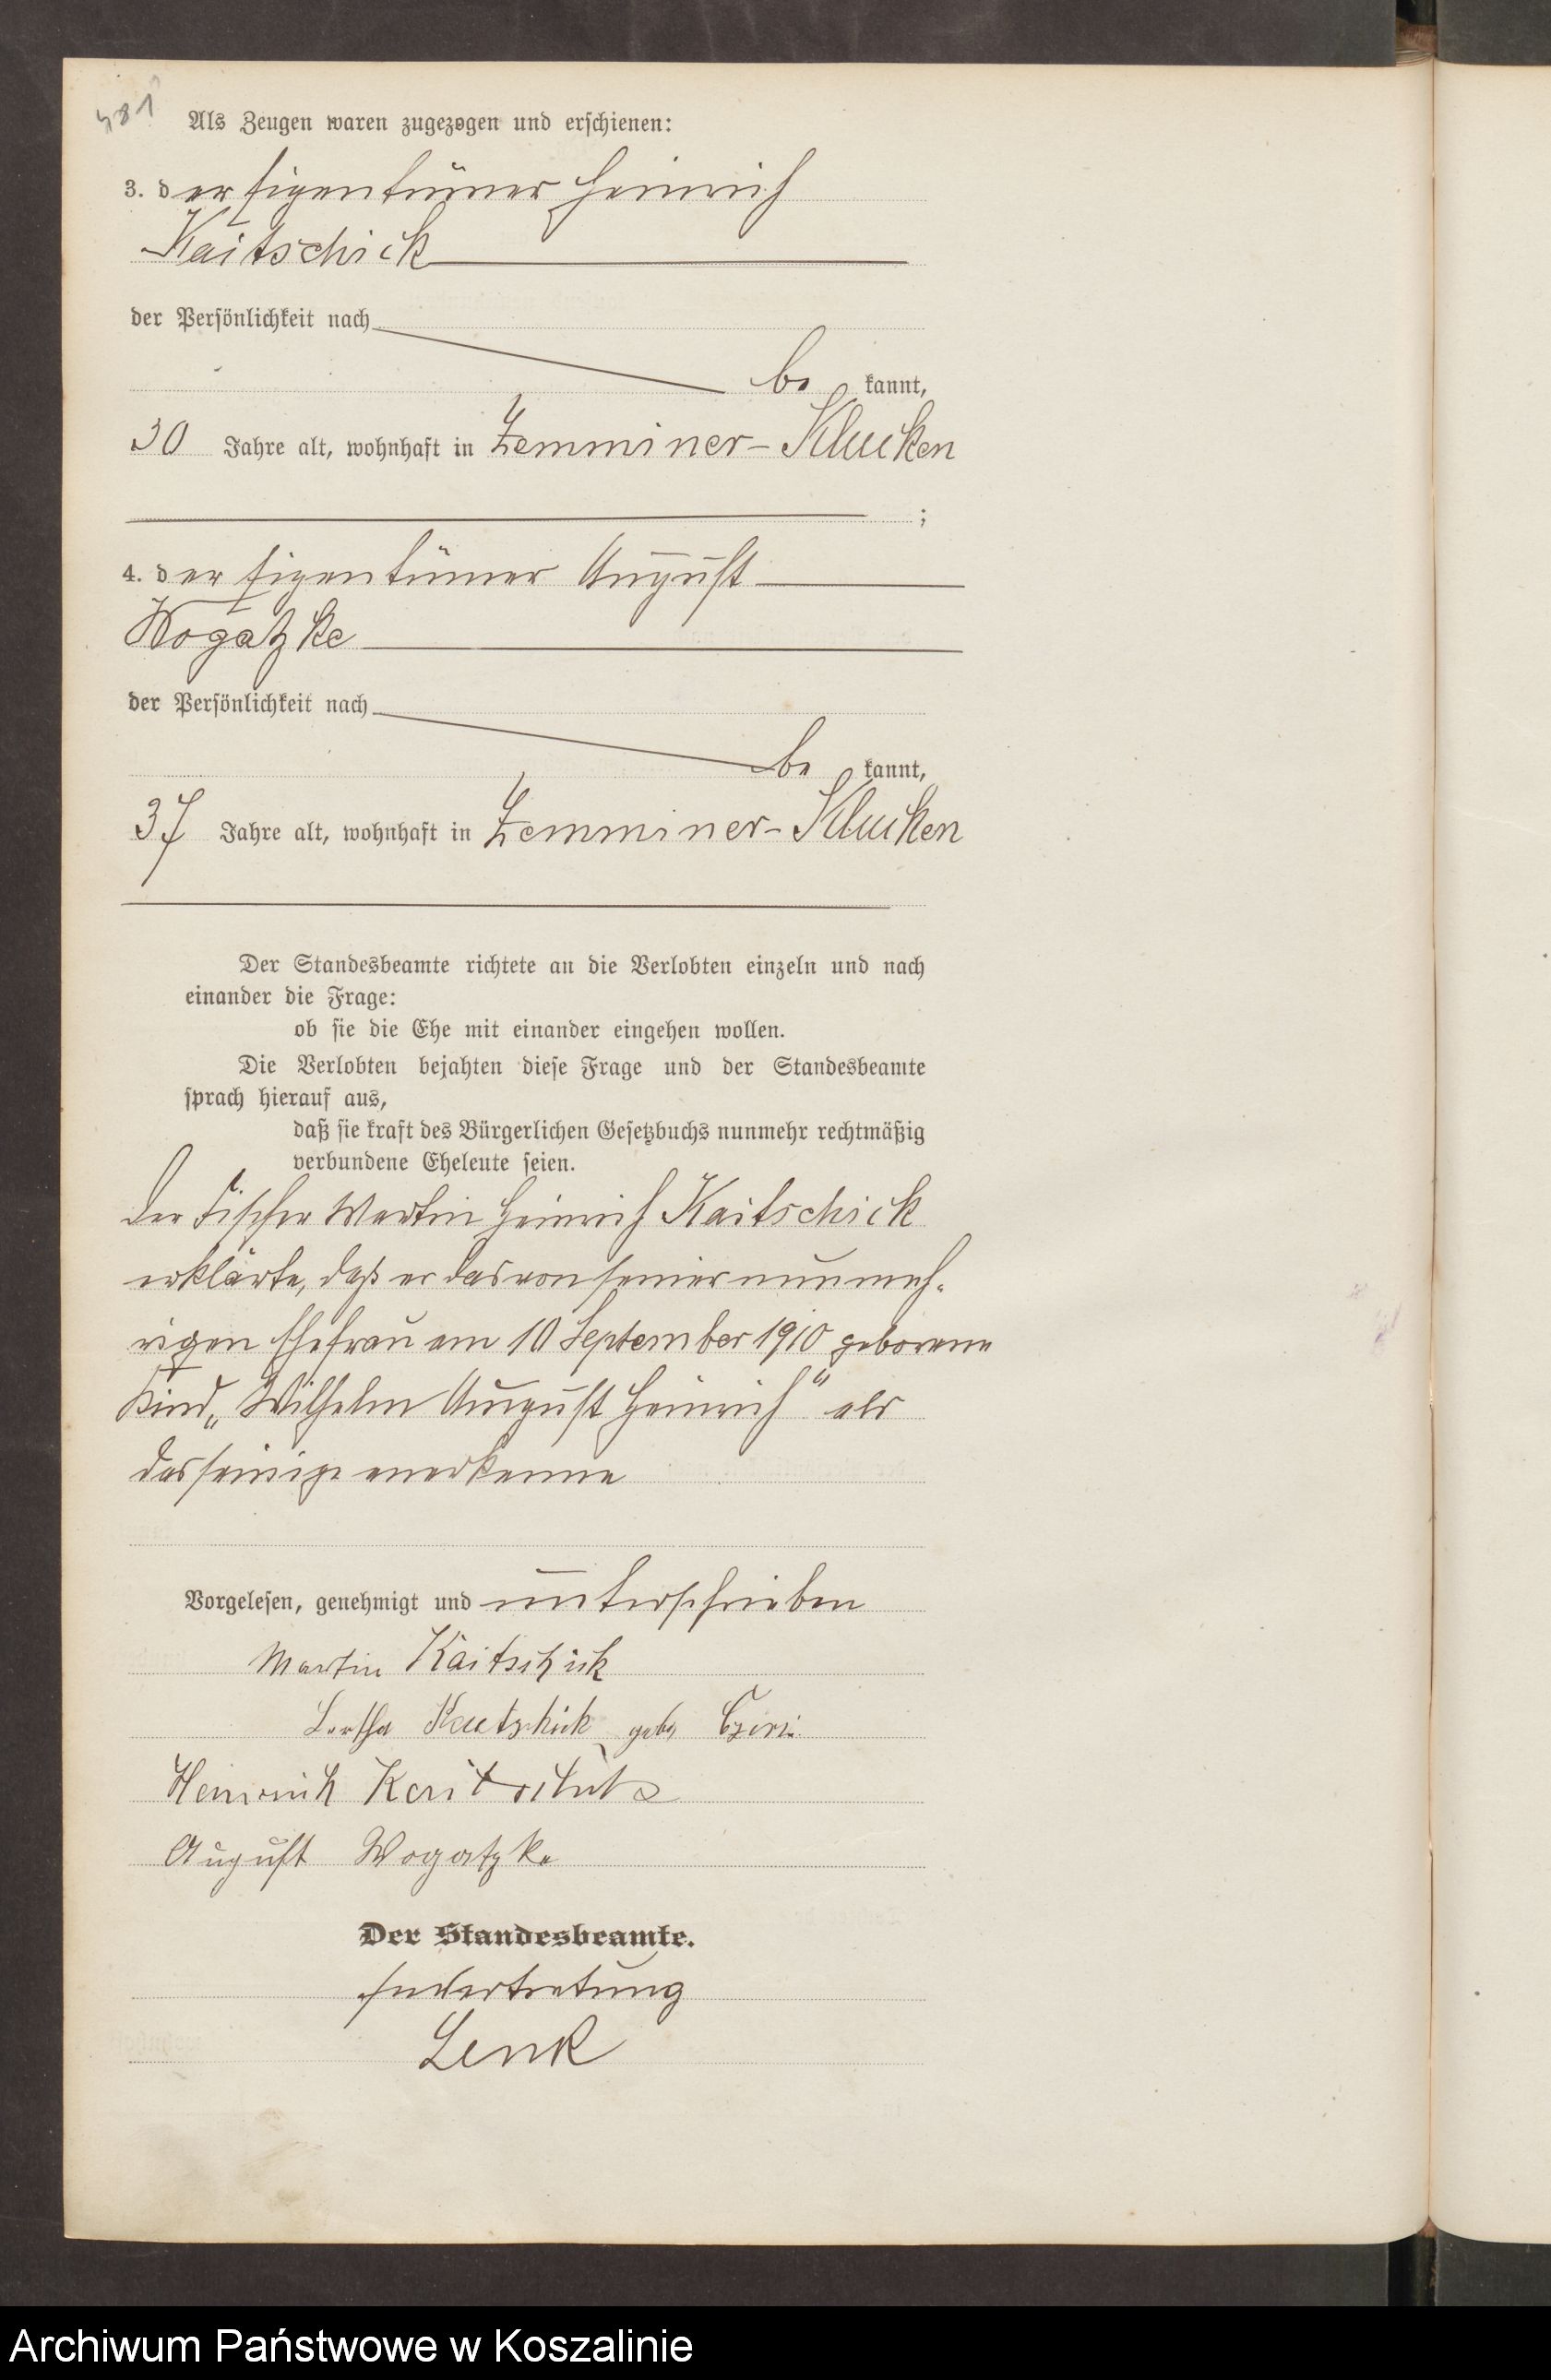 481
Als Zeugen waren zugezogen und erschienen:
3. der Eigentümer Heinrich
Kaitschick
der Persönlichkeit nach
be kannt,
30 Jahre alt, wohnhaft in Zemminer-Klucken
;
4. der Eigentümer August
Wogatzke
der Persönlichkeit nach
be kannt,
37 Jahre alt, wohnhaft in Zemminer-Klucken
Der Standesbeamte richtete an die Verlobten einzeln und nach
einander die Frage:
ob sie die Ehe mit einander eingehen wollen.
Die Verlobten bejahten diese Frage und der Standesbeamte
sprach hierauf aus,
daß sie kraft des Bürgerlichen Gesetzbuchs nunmehr rechtmäßig
verbundene Eheleute seien.
Der Fischer Martin Heinrich Kaitschick
erklärte, daß er das von seiner nunmeh-
rigen Ehefrau am 10 September 1910 geborene
Kind „Wilhelm August Heinrich“ als
das seinige anerkenne
Vorgelesen, genehmigt und unterschrieben
Martin Kaitschick
Kaitschick geb.
Heinrich
August Wogatzke
Der Standesbeamte.
In Vertretung
Lenk
Archiwum Państwowe w Koszalinie